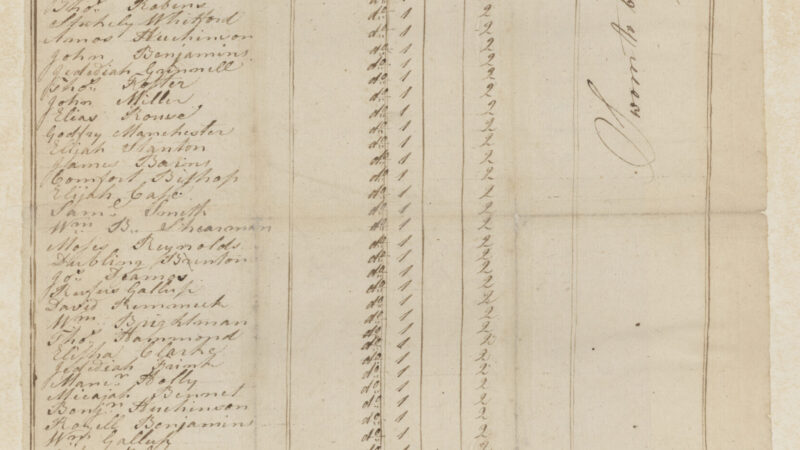 Thos. Robens do 1 2
Whitford do 1 2
Amos Huchinson do 1 2
John Benjamins do 1 2
Jedidiah Grinnell do 1 2
Thos. Foster do 1 2
John Miller do 1 2
Elias Rouse do 1 2
Godfry Manchester do 1 2
Elijah Stanton do 1 2
James Barns do 1 2
Comfort Bishop do 1 2
Elijah Case do 1 2
Saml. Smith do 1 2
Wm B. Shearman do 1 2
Moses Reynolds do 1 2
Dubling Brenton do 1 2
Jos. do 1 2
Rufus Gallup do 1 2
David do 1 2
Wm. Brightman do 1 2
Thos. Hammond do 1 2
Elisha Clarke do 1 2
Jedidiah Brink do 1 2
Holly do 1 2
Micajah Bennet do 1 2
Benjn. Huchinson do 1 2
Benjamins do 1 2
Wm. Gallup do 1 2
Sworn to b